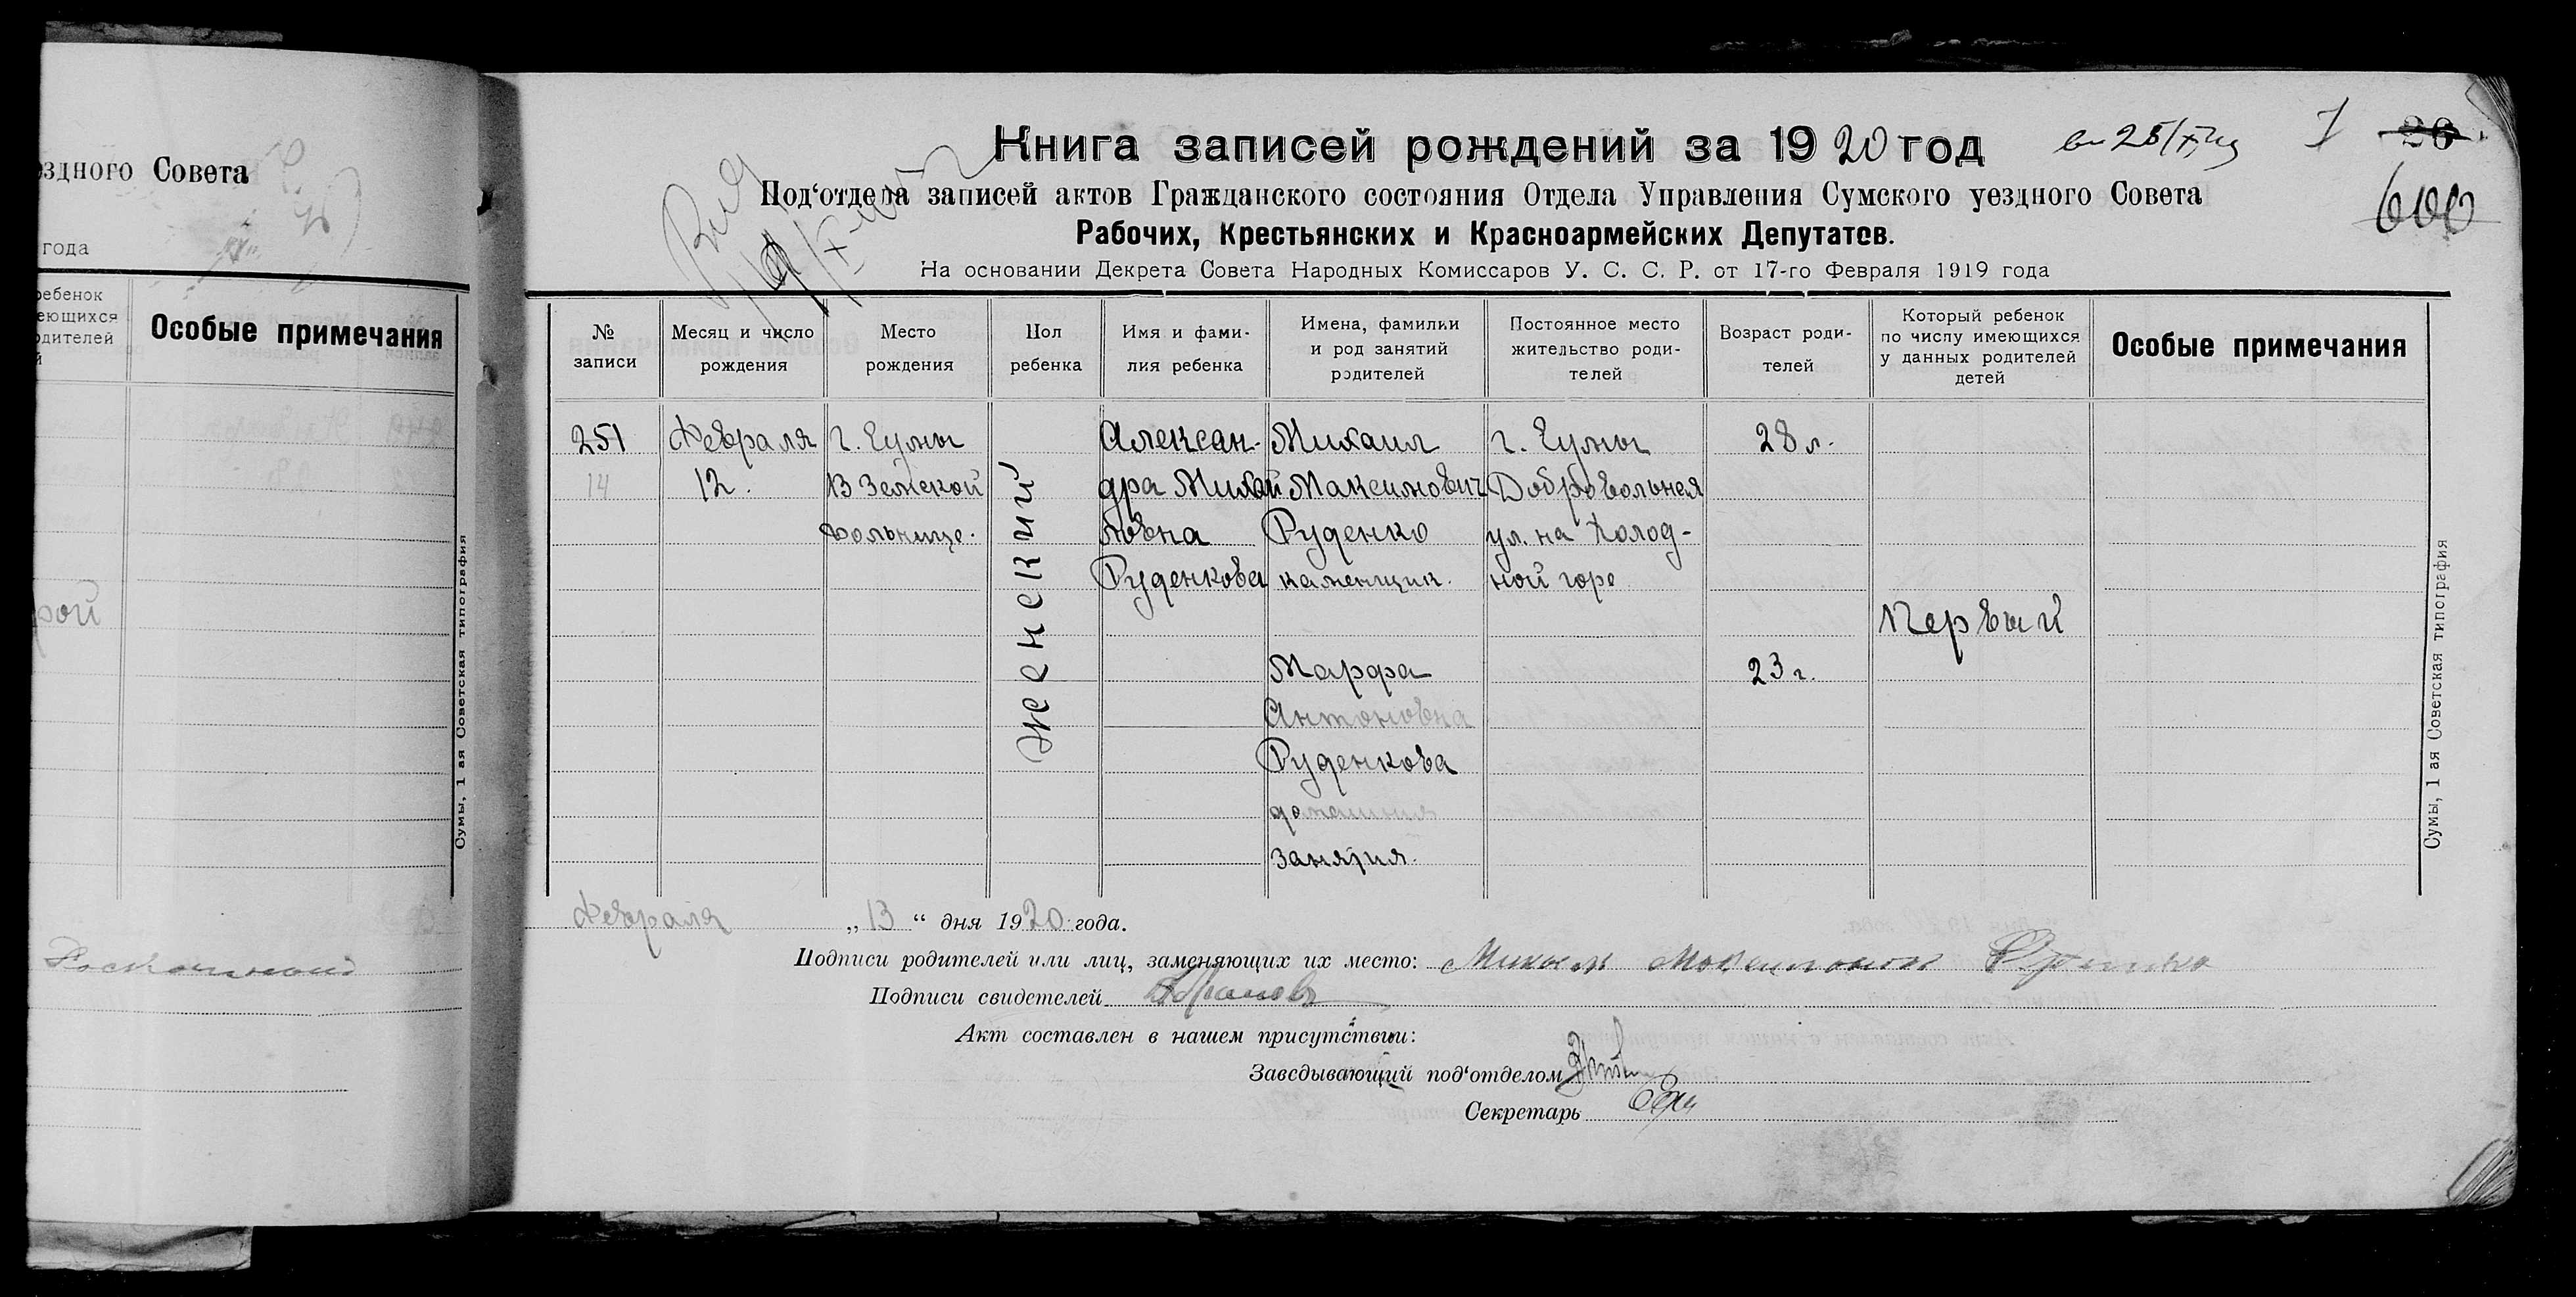 ездного Совета
года
ребенок
еющихся
одителей
й
Особые примечания
рой
Сумы, 1 ая Советская типография
Книга записей рождений за 1920 год
I
26
600
Под‘отдела записей актов Гражданского состояния Отдела Управления Сумского уездного Совета
Рабочих, Крестьянских и Красноармейских Депутатов.
На основании Декрета Совета Народных Комиссаров У. С. С. Р. от 17-го Февраля 1919 года
№
записи
Месяц и число
рождения
Место
рождения
Пол
ребенка
Имя и фами-
лия ребенка
Имена, фамилии
и род занятий
родителей
Постоянное место
жительство роди-
телей
Возраст роди-
телей
Который ребенок
по числу имеющихся
у данных родителей
детей
Особые примечания
251
14
Февраля
12.
г. Сумы
В Земской
больнице.
Женский
Алексан-
дра Михай
ловна
Руденкова
Михаил
Максимович
Руденко
каменщик.
Марфа
Антоновна
Руденкова
домашния
занятия.
г. Сумы
Добровольная
ул. на Холод-
ной горе
28 л.
23 г.
Первый
Сумы, 1 ая Советская типография
Февраля „13“ дня 1920 года.
Подписи родителей или лиц, заменяющих их место:
Подписи свидетелей
Акт составлен в нашем присутствии:
Заведывающий под‘отделом
Секретарь